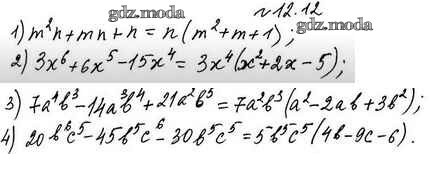 gdz.moda
N12.12
gdz.moda
1) m²n+mn+n = n(m²+m+1);
2) 3x⁶+6x⁵-15x⁴ = 3x⁴(x²+2x-5);
3) 7a⁴b³-14a³b⁴+21a²b⁵=7a²b³(a²-2ab+3b²);
4) 20b⁶c⁵-45b⁵c⁶-30b⁵c⁵=5b⁵c⁵(4b-9c-6).